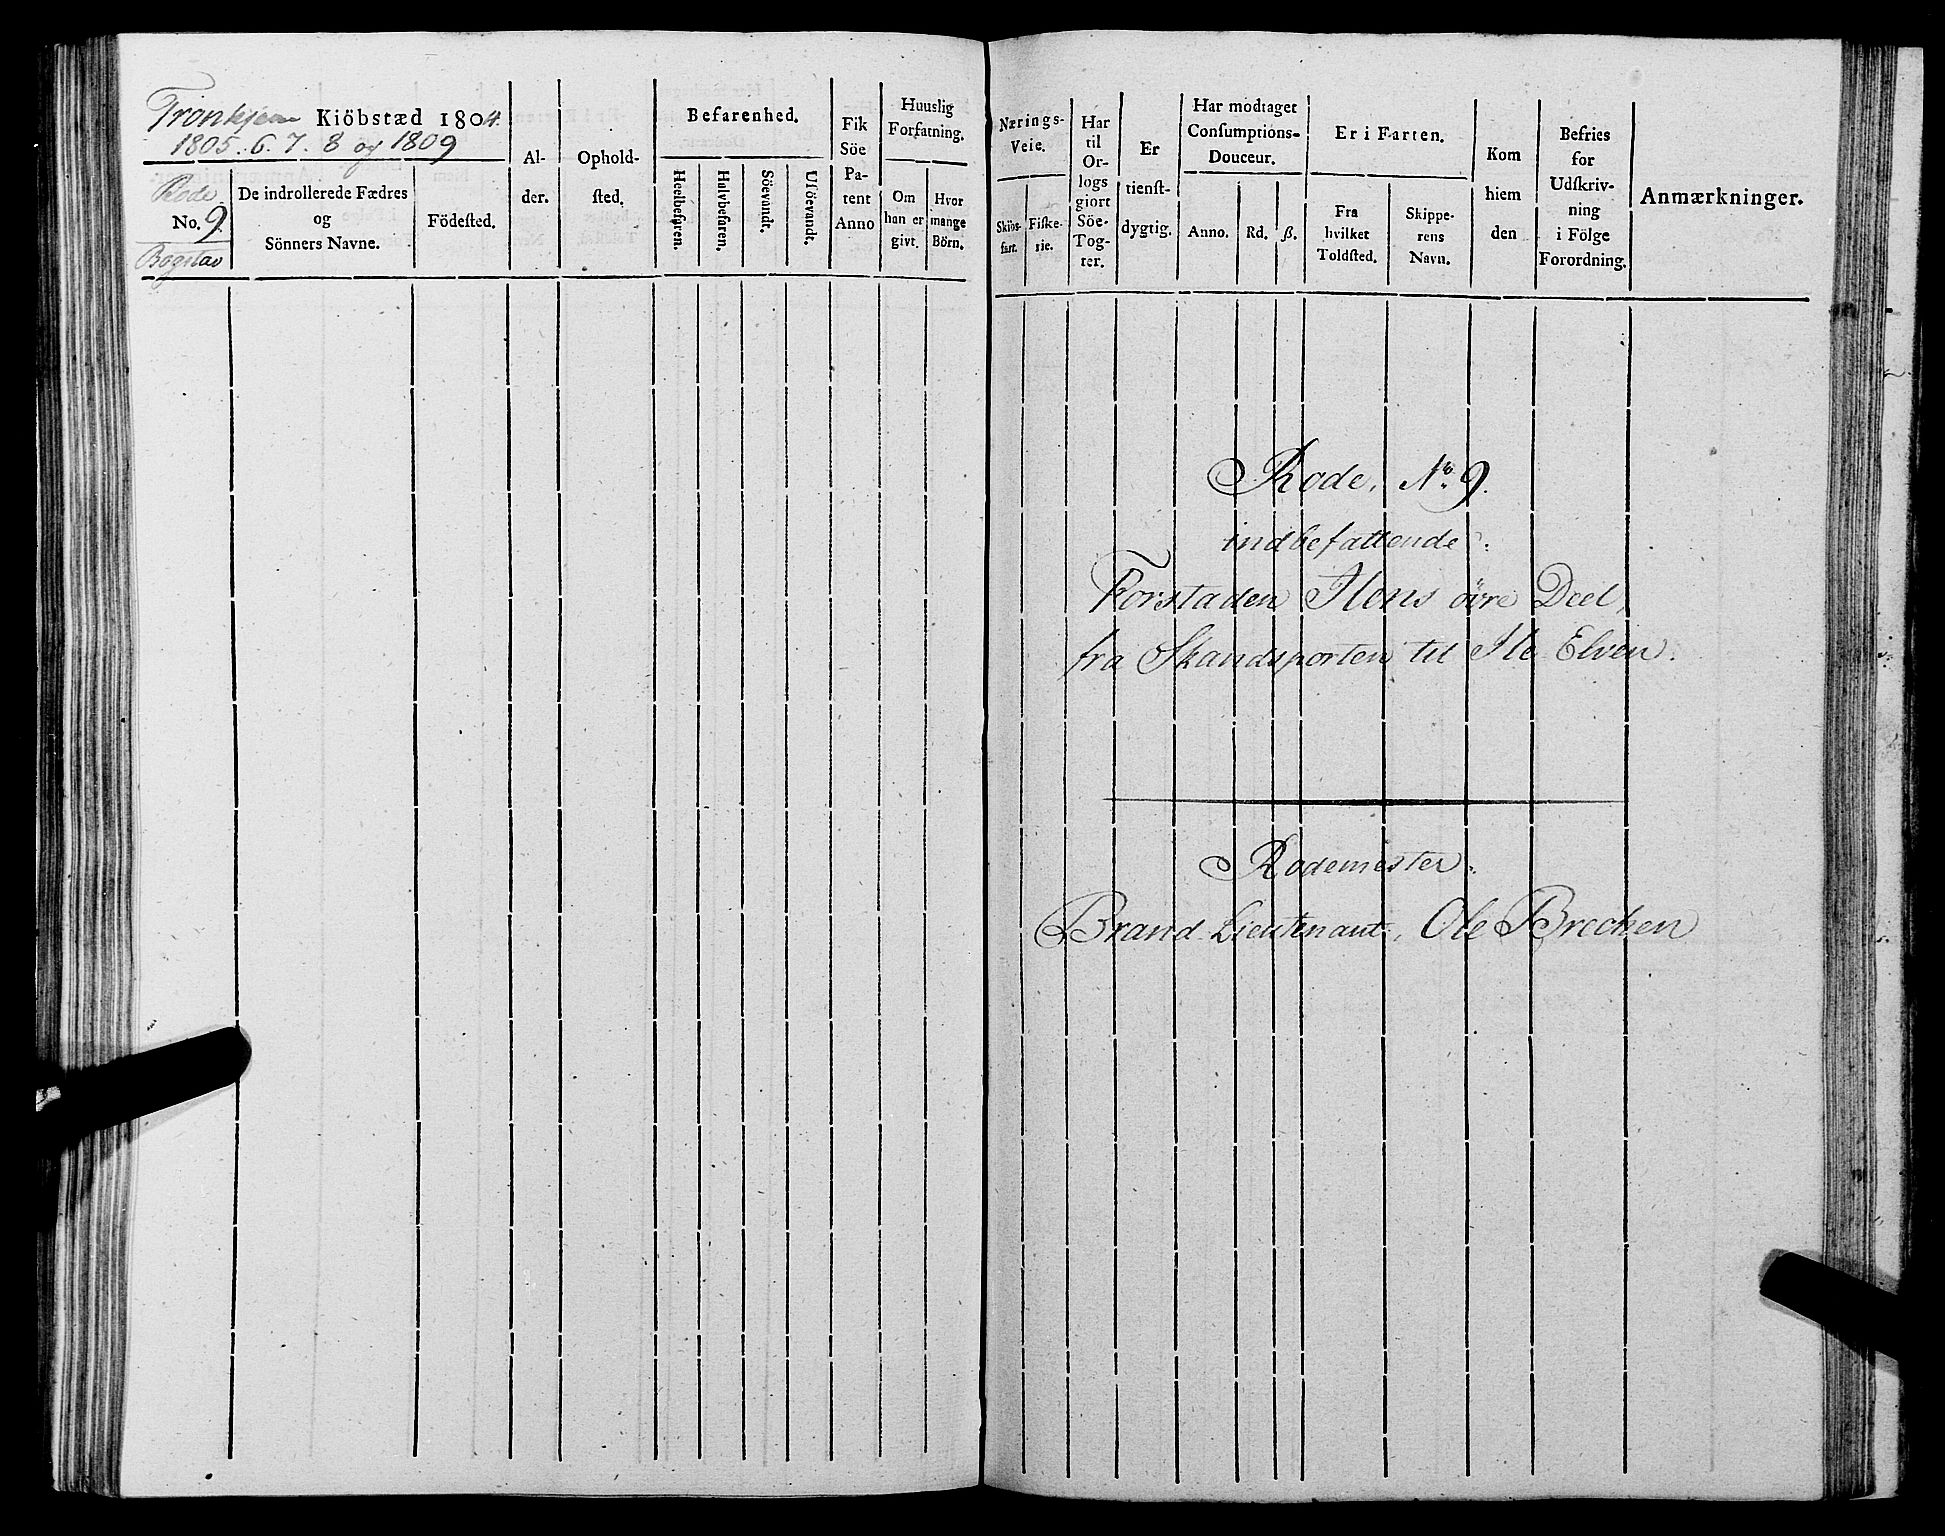 Tronhjem Kiöbstæd 1804.
1805. 6. 7. 8 og 1809
Rode
No. 9.
Bogstav
De indrollerede Fædres
og
Sönners Navne.
Födested.
Al-
der.
Ophold-
sted.
Befarenhed.
Heelbefaren.
Halvbefaren.
Söevandt.
Usöevandt.
Fik
Söe
Pa-
tent
Anno
Huuslig
Forfatning.
Om
han er
givt.
Hvor
mange
Börn.
Nærings-
Veie.
Skibs-
fart.
Fiske-
rie.
Har
til
Or-
logs
giort
Söe-
Tog-
ter.
Er
tienst-
dygtig.
Har modtaget
Consumptions-
Douceur.
Anno.
Rd.
ß.
Er i Farten.
Fra
hvilket
Toldsted.
Skippe-
rens
Navn.
Kom
hiem
den
Befries
for
Udskriv-
ning
i Fölge
Forordning.
Anmærkninger.
Rode, No. 9.
indbefattende.
Forstaden Ilens övre Deel,
fra Skandsporten til Ile Elven.
Rodemester.
Brand-Lieutenant, Ole Brecken